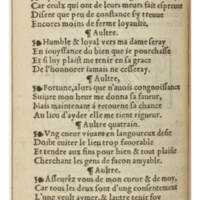 Car ceulx qui ont de leurs meur fait espreuue
Disent que peu de constance s'y treuue
Encores moins de ferme loyaulté.
¶ Aultre.
Humble & loyal vers ma dame seray
En iouyssance du bien que ie pourchasse
Et si luy plaist me tenir en sa grace
De l'honnorer iamais ne cesseray.
¶ Aultre,
Fortune, alors que n'auois congnoissance
Suiure mon heur me donna sa faueur,
Mais maintenant à retourné sa chance
Au lieu d'ayder elle me tient rigueur.
¶ Aultre quatrain.
Vng cueur viuant en langoureux desir
Doibt euiter le lieu trop fauorable
Et tendre aux fins pour bien & tout plaisir
Cherchant les gens de facon amyable.
¶ Aultre.
Asseurez vous de mon cueur & de moy,
Car tous les deux sont d'vne consentement
L'vne veult aymer, & lautre tenir foy